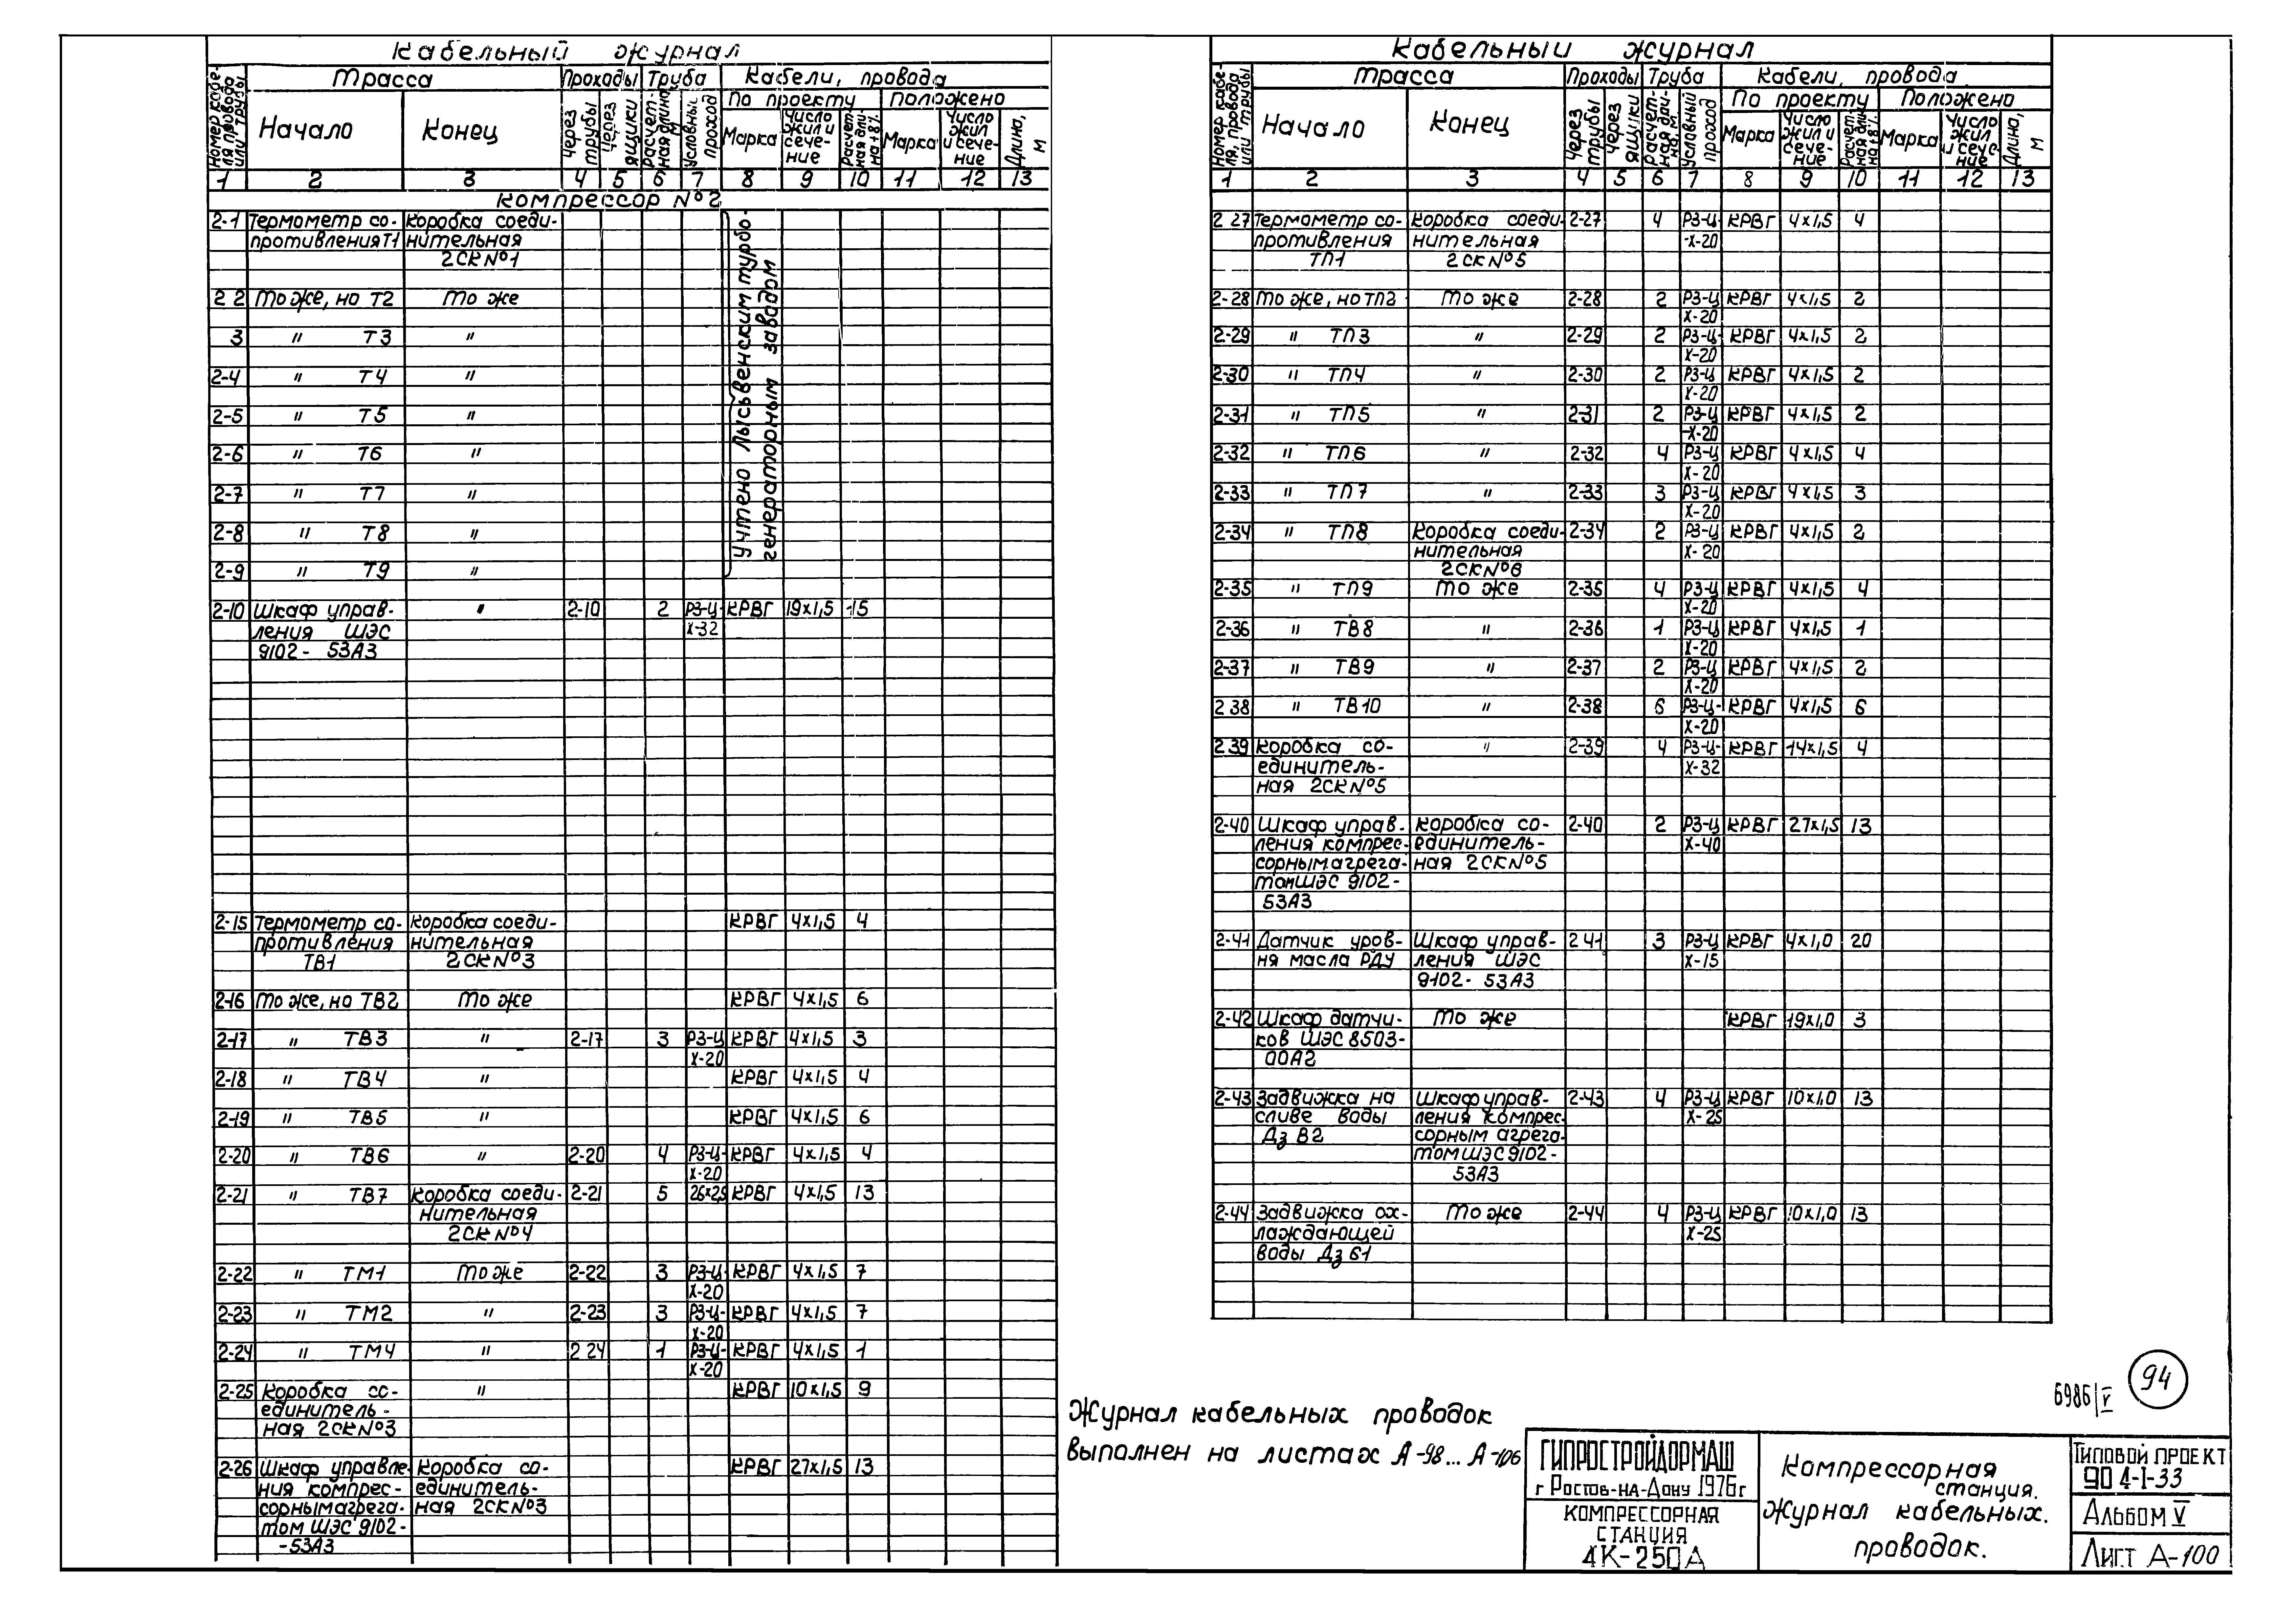 Кабельный журнал
Номер кабеля, провода или трубы | Трасса | Проходы | Труба | Кабели, провода
Начало | Конец | Через трубы | Через ящики | Расчетная длина м | Условный проход | По проекту | Положено
Марка | Число жил и сечение | Расчетная длина +8% | Марка | Число жил и сечение | Длина, м
1 2 3 4 5 6 7 8 9 10 11 12 13
Компрессор №2
2-1 Термометр со- Коробка соеди-
противления Т1 нительная
2СК №1
2 2 То же, но Т2 То же
3 " Т3 "
2-4 " Т4 "
2-5 " Т5 "
2-6 " Т6 "
2-7 " Т7 "
2-8 " Т8 "
2-9 " Т9 "
Учтено Лысьвенским турбо-
генераторным заводом
2-10 Шкаф управ- " 2-10 2 РЗ-Ц- КРВГ 19х1,5 15
ления ШЭС Х-32
9102- 53А3
2-15 Термометр со- Коробка соеди- КРВГ 4х1,5 4
противления нительная
ТВ1 2СК №3
2-16 То же, но ТВ2 То же КРВГ 4х1,5 6
2-17 " ТВ3 " 2-17 3 РЗ-Ц КРВГ 4х1,5 3
Х-20
2-18 " ТВ4 " КРВГ 4х1,5 4
2-19 " ТВ5 " КРВГ 4х1,5 6
2-20 " ТВ6 " 2-20 4 РЗ-Ц- КРВГ 4х1,5 4
Х-20
2-21 " ТВ7 Коробка соеди- 2-21 5 КРВГ 4х1,5 13
нительная
2СК №4
2-22 " ТМ1 То же 2-22 3 РЗ-Ц- КРВГ 4х1,5 7
Х-20
2-23 " ТМ2 " 2-23 3 РЗ-Ц- КРВГ 4х1,5 7
Х-20
2-24 " ТМ4 " 2 24 1 РЗ-Ц- КРВГ 4х1,5 1
Х-20
2-25 Коробка со- " КРВГ 10х1,5 9
единитель-
ная 2СК №3
2-26 Шкаф управле- Коробка со- КРВГ 27х1,5 13
ния компрес- единитель-
сорным агрега- ная 2СК №3
том ШЭС 9102-
-53А3
Кабельный журнал
Номер кабеля, провода или трубы | Трасса | Проходы | Труба | Кабели, провода
Начало | Конец | Через трубы | Через ящики | Расчетная длина, м | Условный проход | По проекту | Положено
Марка | Число жил и сечение | Расчетная длина +8% | Марка | Число жил и сечение | Длина, м
1 2 3 4 5 6 7 8 9 10 11 12 13
2 27 Термометр со- Коробка соеди- 2-27 4 РЗ-Ц- КРВГ 4х1,5 4
противления нительная -Х-20
ТП1 2СК №5
2-28 То же, но ТП2 То же 2-28 2 РЗ-Ц КРВГ 4х1,5 2
Х-20
2-29 " ТП3 " 2-29 2 РЗ-Ц- КРВГ 4х1,5 2
Х-20
2-30 " ТП4 " 2-30 2 РЗ-Ц КРВГ 4х1,5 2
Х-20
2-31 " ТП5 " 2-31 2 РЗ-Ц КРВГ 4х1,5 2
-Х-20
2-32 " ТП6 " 2-32 4 РЗ-Ц КРВГ 4х1,5 4
Х-20
2-33 " ТП7 " 2-33 3 РЗ-Ц КРВГ 4х1,5 3
Х-20
2-34 " ТП8 Коробка соеди- 2-34 2 РЗ-Ц КРВГ 4х1,5 2
нительная Х-20
2СК №6
2-35 " ТП9 То же 2-35 4 РЗ-Ц КРВГ 4х1,5 4
Х-20
2-36 " ТВ8 " 2-36 1 РЗ-Ц КРВГ 4х1,5 1
Х-20
2-37 " ТВ9 " 2-37 2 РЗ-Ц КРВГ 4х1,5 2
Х-20
2 38 " ТВ10 " 2-38 6 РЗ-Ц- КРВГ 4х1,5 6
Х-20
2 39 Коробка со- " 2-39 4 РЗ-Ц- КРВГ 14х1,5 4
единитель- Х-32
ная 2СК №5
2-40 Шкаф управ- Коробка со- 2-40 2 РЗ-Ц КРВГ 27х1,5 13
ления компрес- единитель- Х-40
сорным агрега- ная 2СК №5
том ШЭС 9102-
53А3
2-41 Датчик уров- Шкаф управ- 2 41 3 РЗ-Ц КРВГ 4х1,0 20
ня масла РДУ ления ШЭС Х-15
9102- 53А3
2-42 Шкаф датчи- То же КРВГ 19х1,0 3
ков ШЭС 8503-
00А2
2-43 Задвижка на Шкаф управ- 2-43 4 РЗ-Ц КРВГ 10х1,0 13
сливе воды ления компрес- Х-25
Дз В2 сорным агрега-
том ШЭС 9102-
53А3
2-44 Задвижка ох- То же 2-44 4 РЗ-Ц КРВГ 10х1,0 13
лаждающей Х-25
воды Дз Б1
Журнал кабельных проводок
выполнен на листах А-98... А-106
6986/V
94
ГИПРОСТРОЙДОРМАШ
г Ростов-на-Дону 1976г
КОМПРЕССОРНАЯ
СТАНЦИЯ
4К-250А
Компрессорная
станция.
Журнал кабельных.
проводок.
Типовой проект
904-I-33
Альбом V
Лист А-100